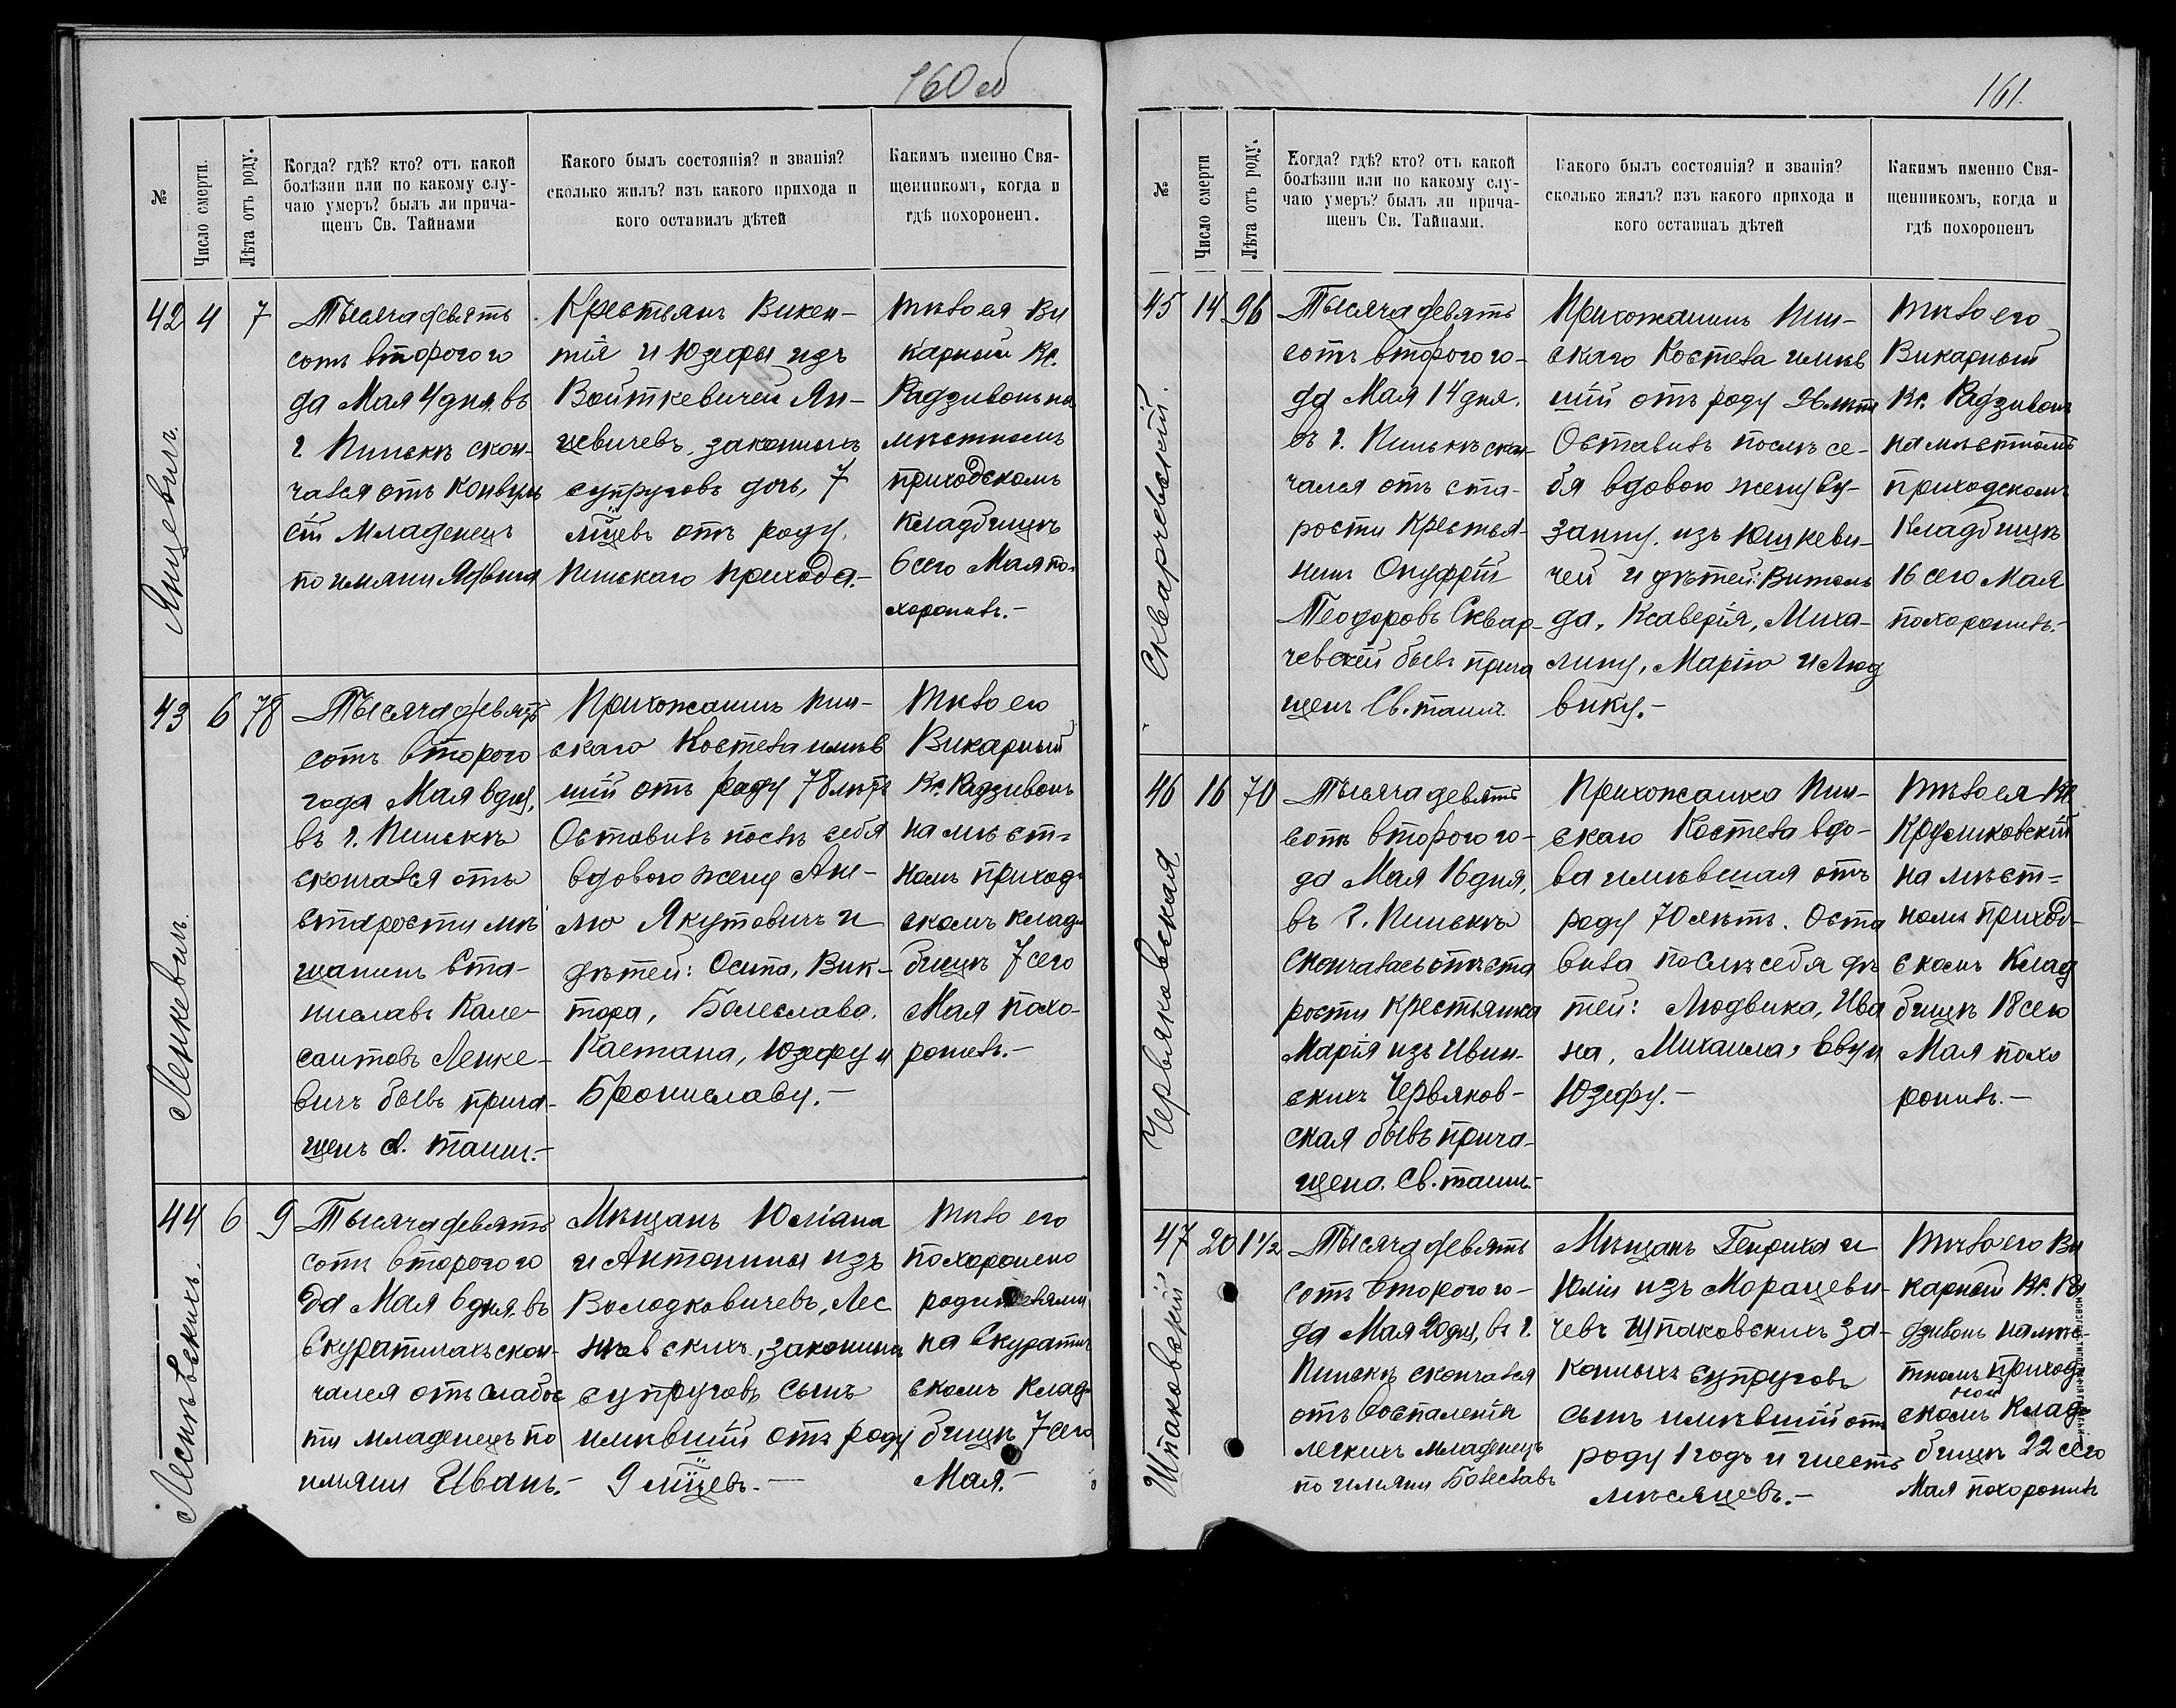 160 об
№
Число смерти.
Лѣта отъ роду.
Когда? гдѣ? кто? отъ какой
болѣзни или по какому слу-
чаю умеръ? былъ ли прича-
щенъ Св. Тайнами
Какого былъ состоянія? и званія?
сколько жилъ? изъ какого прихода и
кого оставилъ дѣтей
Какимъ именно Свя-
щенникомъ, когда и
гдѣ похороненъ.
Янцевичъ.
42 4 7
Тысяча девять
сотъ второго го
да Мая 4 дня въ
г. Пинскѣ скон-
чался отъ конвуль
сій младенецъ
по имяни Ядвига
Крестьянъ Викен-
тія и Юзефы изъ
Войткевичей Ян-
цевичевъ, законныхъ
супруговъ дочь, 7
мѣсяцевъ отъ роду,
Пинскаго прихода.-
Тѣло ея Ви
карный Кс.
Радзивонъ на
мѣстномъ
приходскомъ
кладбищѣ
6 сего Мая по-
хоронилъ.-
Ленкевичъ.
43 6 78
Тысяча девять
сотъ второго
года Мая 6 дня,
въ г. Пинскѣ
скончался отъ
старости мѣ
щанинъ Ста-
ниславъ Кале-
сантовъ Ленке-
вичъ бывъ прича-
щенъ С. таин.-
Прихожанинъ Пин-
скаго Костела имѣв
шій отъ роду 78 лѣтъ
Оставивъ послѣ себя
вдовою жену Ане-
лю Якутовичъ и
дѣтей: Осипа, Вик-
тора, Болеслава,
Каетана, Юзефу и
Брониславу.-
Тѣло его
Викарный
Кс. Радзивонъ
на мѣст-
номъ приход-
скомъ клад-
бищѣ 7 сего
Мая похо-
ронилъ.-
Леснѣвскихъ.
44 6 9
Тысяча девять
сотъ второго го
да Мая 6 дня въ
Скуратичахъ скон-
чался отъ слабос
ти младенецъ по
имяни Иванъ.-
Мѣщанъ Юліана
и Антонины изъ
Володковичевъ, Лес
нѣвскихъ, законныхъ
супруговъ сынъ
имѣвшій отъ роду
9 мѣсяцевъ.-
Тѣло его
похоронено
родителями
на Скуратич
скомъ клад-
бищѣ 7 сего
Мая.-
161.
№
Число смерти
Лѣта отъ роду.
Когда? гдѣ? кто? отъ какой
болѣзни или по какому слу-
чаю умеръ? былъ ли прича-
щенъ Св. Тайнами.
Какого былъ состоянія? и званія?
сколько жилъ? изъ какого прихода и
кого оставилъ дѣтей
Какимъ именно Свя-
щенникомъ, когда и
гдѣ похороненъ
Скварчевскій.
45 14 96
Тысяча девять
сотъ второго го-
да Мая 14 дня.
въ г. Пинскѣ скон-
чался отъ ста-
рости крестья-
нинъ Онуфрій
Теодоровъ Сквар-
чевскій бывъ прича
щенъ Св. таин.
Прихожанинъ Пин-
скаго Костела имѣв
шій отъ роду 96 лѣтъ
Оставивъ послѣ се-
бя вдовою жену Су-
занну, изъ Юшкеви-
чей и дѣтей: Витоль
да, Ксаверія, Миха-
лину, Марію и Люд
вику.-
Тѣло его
Викарный
Кс. Радзивонъ
на мѣстномъ
приходскомъ
кладбищѣ
16 сего Мая
похоронилъ.-
Червяковская
46 16 70
Тысяча девять
сотъ второго го-
да Мая 16 дня,
въ г. Пинскѣ
скончалась отъ ста
рости крестьянка
Марія изъ Ивин-
скихъ Червяков-
ская бывъ прича-
щена Св. таин.-
Прихожанка Пин-
скаго Костела вдо-
ва имѣвшая отъ
роду 70 лѣтъ. Оста
вила послѣ себя дѣ
тей: Людвика, Ива
на, Михаила, Еву и
Юзефу.-
Тѣло ея Кс
на мѣст-
номъ приход-
скомъ Клад
бищѣ 18 сего
Мая похо
ронилъ.-
Шпаковскій
47 20 1 1/2
Тысяча девять
сотъ второго го-
да Мая 20 дня, въ г.
Пинскѣ скончался
отъ воспаленія
легкихъ младенецъ
по имяни Болеславъ
Мѣщанъ Генриха и
Юліи изъ Морацеви-
чевъ Шпаковскихъ за-
конныхъ супруговъ
сынъ имѣвшій отъ
роду 1 годъ и шесть
мѣсяцевъ.-
Тѣло его Ви
карный Кс. Ра
дзивонъ на мѣс-
тномъ приход-
скомъ клад-
бищѣ 22 сего
Мая похоронилъ